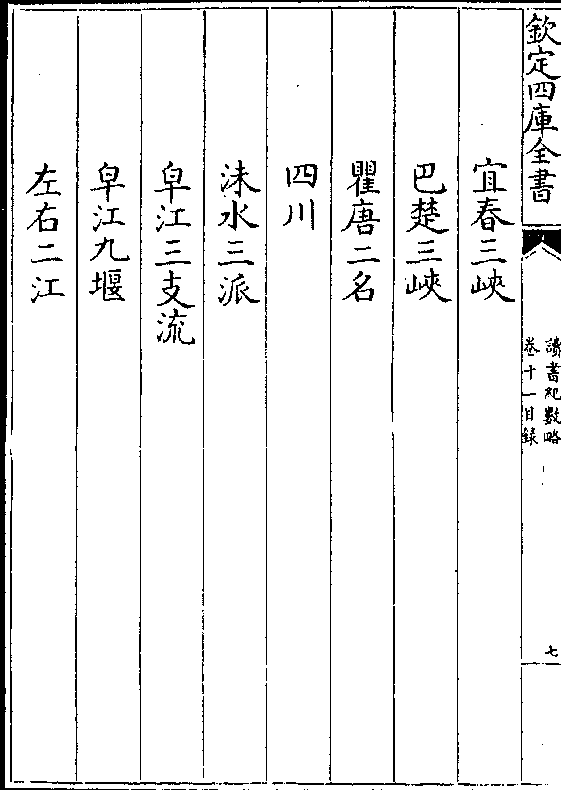 欽定四庫全書
讀書紀數略
卷十一目録
七
宜春三峽
巴楚三峽
瞿唐二名
四川
沬水三派
皁江三支流
皁江九堰
左右二江